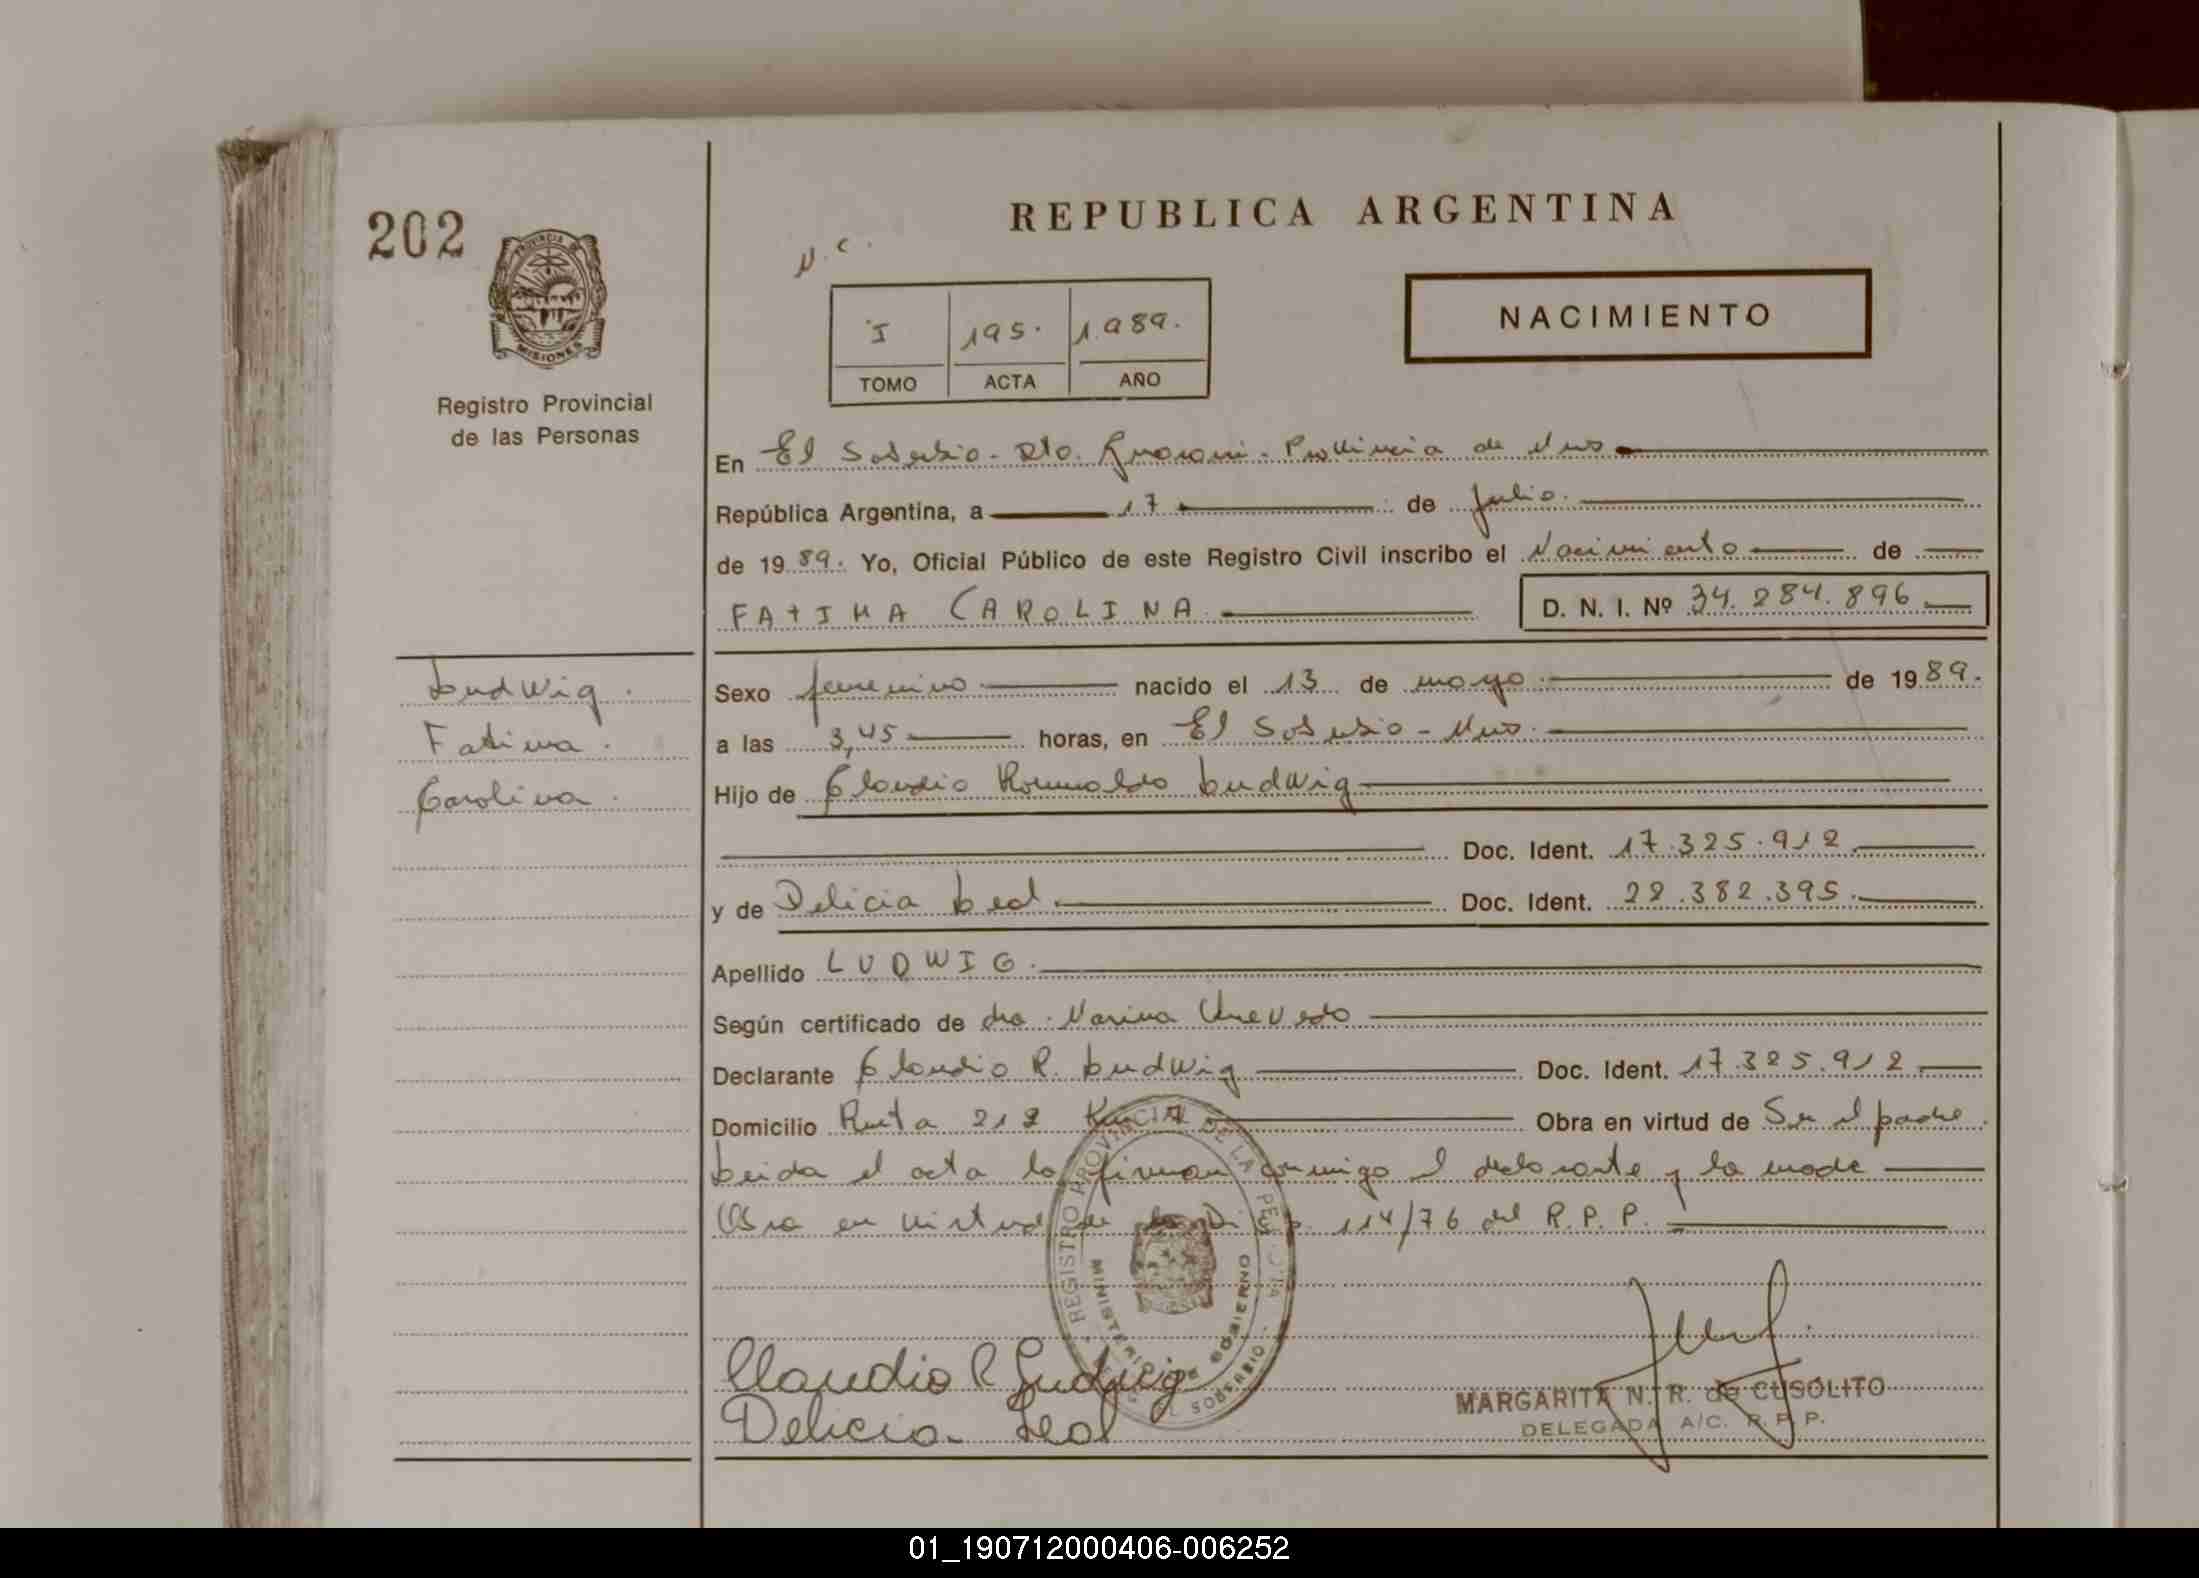 202
PROVINCIA DE
MISIONES
Registro Provincial
de las Personas
REPUBLICA ARGENTINA
N.C.
I 195. 1.989.
TOMO ACTA AÑO
NACIMIENTO
En El Soberbio - Dto. Guarani - Provincia de Mnes
República Argentina, a 17 de Julio.
de 1989. Yo, Oficial Público de este Registro Civil inscribo el Nacimiento de
FATIMA CAROLINA D. N. I. Nº 34.284.896
Ludwig.
Fatima.
Carolina.
Sexo femenino nacido el 13 de mayo de 1989.
a las 3,45 horas, en El Soberbio - Mnes.
Hijo de Claudio Romualdo Ludwig
Doc. Ident. 17.325.912
y de Delicia Leal. Doc. Ident. 22.382.395.
Apellido LUDWIG.
Según certificado de dra. Marina
Declarante Claudio R. Ludwig Doc. Ident. 17.325.912
Domicilio Ruta 212 Km Obra en virtud de Ser el padre.
Leida el acta la firman conmigo el declarante y la madre
Obra en virtud de la Disp. 114/76 del R.P.P.
REGISTRO PROVINCIAL DE LAS PERSONAS
MINISTERIO DE GOBIERNO
EL SOBERBIO
Claudio R Ludwig
Delicia Leal
MARGARITA N. R. de CUSOLITO
DELEGADA A/C. R. P. P.
01_190712000406-006252